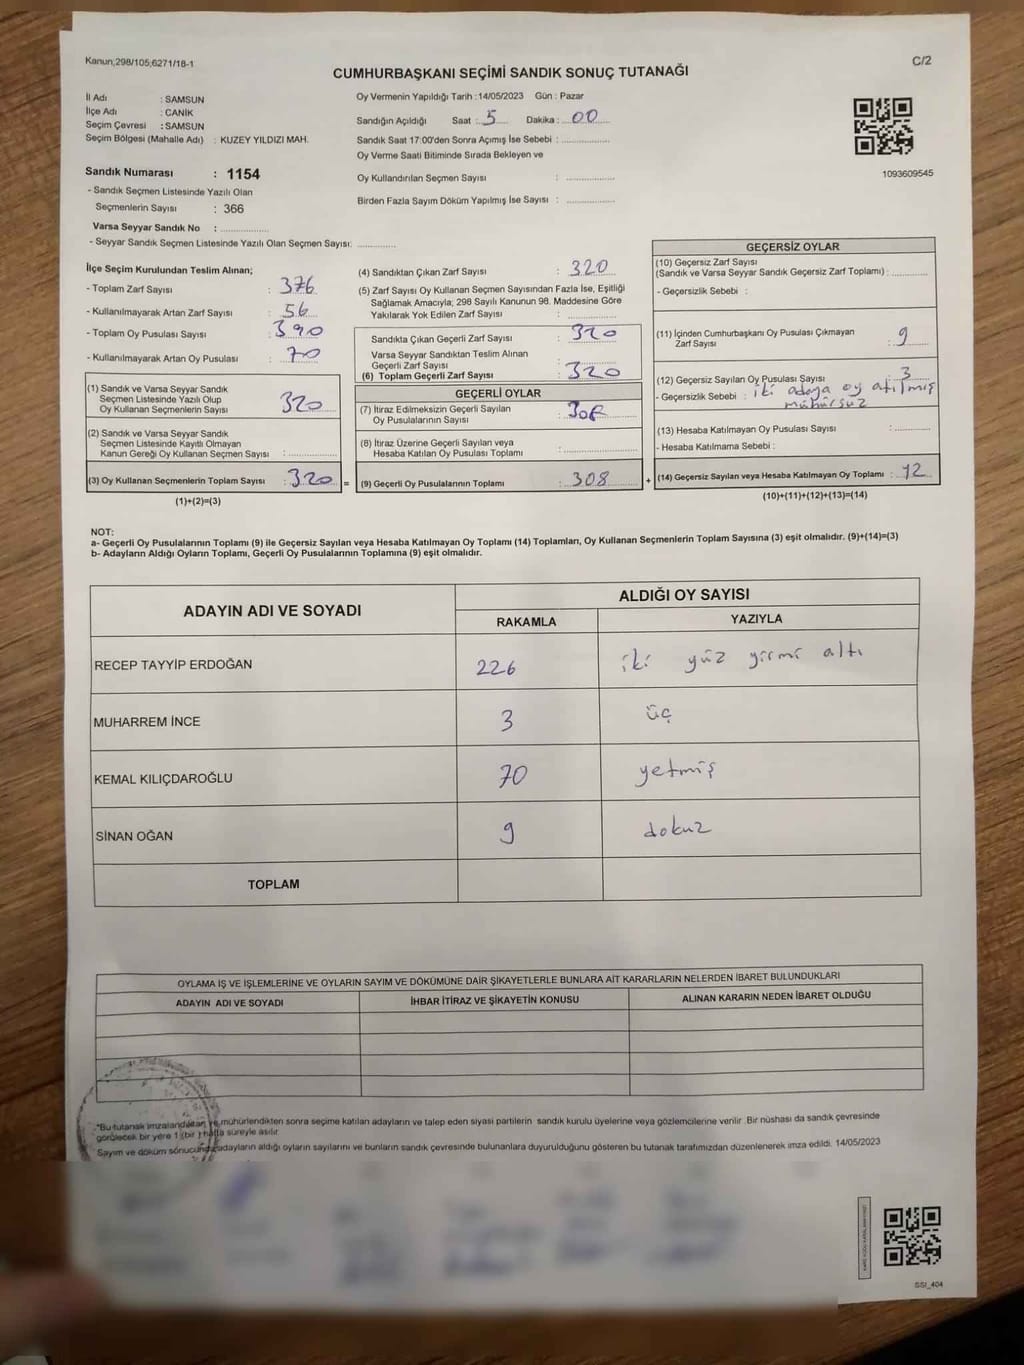 Kanun;298/105;6271/18-1
C/2
CUMHURBAŞKANI SEÇİMİ SANDIK SONUÇ TUTANAĞI
İl Adı : SAMSUN
İlçe Adı : CANİK
Seçim Çevresi : SAMSUN
Seçim Bölgesi (Mahalle Adı) : KUZEY YILDIZI MAH.
Sandık Numarası : 1154
- Sandık Seçmen Listesinde Yazılı Olan
Seçmenlerin Sayısı : 366
Varsa Seyyar Sandık No : ................
- Seyyar Sandık Seçmen Listesinde Yazılı Olan Seçmen Sayısı: ............
Oy Vermenin Yapıldığı Tarih :14/05/2023 Gün : Pazar
Sandığın Açıldığı Saat : 5 Dakika : 00
Sandık Saat 17:00'den Sonra Açımış İse Sebebi : ................
Oy Verme Saati Bitiminde Sırada Bekleyen ve
Oy Kullandırılan Seçmen Sayısı : ................
Birden Fazla Sayım Döküm Yapılmış İse Sayısı : ................
1093609545
İlçe Seçim Kurulundan Teslim Alınan;
- Toplam Zarf Sayısı : 376
- Kullanılmayarak Artan Zarf Sayısı : 56
- Toplam Oy Pusulası Sayısı : 390
- Kullanılmayarak Artan Oy Pusulası : 70
(1) Sandık ve Varsa Seyyar Sandık
Seçmen Listesinde Yazılı Olup
Oy Kullanan Seçmenlerin Sayısı : 320
(2) Sandık ve Varsa Seyyar Sandık
Seçmen Listesinde Kayıtlı Olmayan
Kanun Gereği Oy Kullanan Seçmen Sayısı : ................
(3) Oy Kullanan Seçmenlerin Toplam Sayısı : 320 =
(1)+(2)=(3)
(4) Sandıktan Çıkan Zarf Sayısı : 320
(5) Zarf Sayısı Oy Kullanan Seçmen Sayısından Fazla İse, Eşitliği
Sağlamak Amacıyla; 298 Sayılı Kanunun 98. Maddesine Göre
Yakılarak Yok Edilen Zarf Sayısı : ................
Sandıkta Çıkan Geçerli Zarf Sayısı : 320
Varsa Seyyar Sandıktan Teslim Alınan
Geçerli Zarf Sayısı : ................
(6) Toplam Geçerli Zarf Sayısı : 320
GEÇERLİ OYLAR
(7) İtiraz Edilmeksizin Geçerli Sayılan
Oy Pusulalarının Sayısı : 308
(8) İtiraz Üzerine Geçerli Sayılan veya
Hesaba Katılan Oy Pusulası Toplamı : ................
(9) Geçerli Oy Pusulalarının Toplamı : 308 +
GEÇERSİZ OYLAR
(10) Geçersiz Zarf Sayısı
(Sandık ve Varsa Seyyar Sandık Geçersiz Zarf Toplamı) : ............
- Geçersizlik Sebebi :
(11) İçinden Cumhurbaşkanı Oy Pusulası Çıkmayan
Zarf Sayısı : 9
(12) Geçersiz Sayılan Oy Pusulası Sayısı : 3
- Geçersizlik Sebebi : iki adaya oy atılmış
mühürsüz
(13) Hesaba Katılmayan Oy Pusulası Sayısı : ............
- Hesaba Katılmama Sebebi :
(14) Geçersiz Sayılan veya Hesaba Katılmayan Oy Toplamı : 12
(10)+(11)+(12)+(13)=(14)
NOT:
a- Geçerli Oy Pusulalarının Toplamı (9) ile Geçersiz Sayılan veya Hesaba Katılmayan Oy Toplamı (14) Toplamları, Oy Kullanan Seçmenlerin Toplam Sayısına (3) eşit olmalıdır. (9)+(14)=(3)
b- Adayların Aldığı Oyların Toplamı, Geçerli Oy Pusulalarının Toplamına (9) eşit olmalıdır.
ADAYIN ADI VE SOYADI ALDIĞI OY SAYISI
RAKAMLA YAZIYLA
RECEP TAYYİP ERDOĞAN 226 iki yüz yirmi altı
MUHARREM İNCE 3 üç
KEMAL KILIÇDAROĞLU 70 yetmiş
SİNAN OĞAN 9 dokuz
TOPLAM
OYLAMA İŞ VE İŞLEMLERİNE VE OYLARIN SAYIM VE DÖKÜMÜNE DAİR ŞİKAYETLERLE BUNLARA AİT KARARLARIN NELERDEN İBARET BULUNDUKLARI
ADAYIN ADI VE SOYADI İHBAR İTİRAZ VE ŞİKAYETİN KONUSU ALINAN KARARIN NEDEN İBARET OLDUĞU
*Bu tutanak imzalandıktan ve mühürlendikten sonra seçime katılan adayların ve talep eden siyasi partilerin sandık kurulu üyelerine veya gözlemcilerine verilir .Bir nüshası da sandık çevresinde
görülecek bir yere 1 (bir ) hafta süreyle asılır
Sayım ve döküm sonucunda adayların aldığı oyların sayılarını ve bunların sandık çevresinde bulunanlara duyurulduğunu gösteren bu tutanak tarafımızdan düzenlenerek imza edildi. 14/05/2023
SSI_404